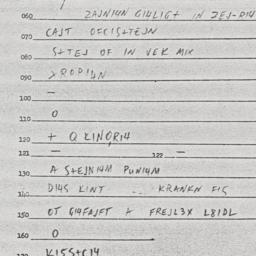 060 ZAJNI4N GI4LIGT IN ZEJ-DI4
070 CAJT OFCISTEJN
080 STEJ OF IN VEK MIX
090
100 —
110 O
120 + Q KINO,RI4
121 — 122 —
130 A STEJNI4M PUNI4M
140 DI4S KINT .. KRANKN FIS
150 OT GI4FAJFT + FREJL3X L8IDL
160 O
KISSTCI4